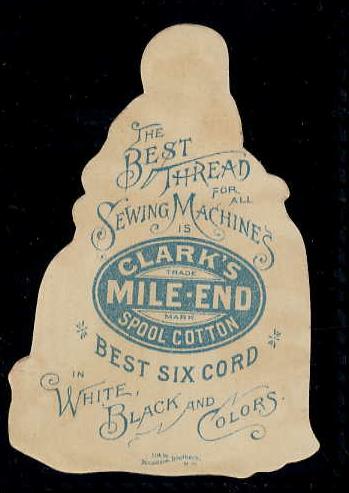 THE
BEST
THREAD
FOR
ALL
SEWING MACHINES
IS
CLARK'S
TRADE
MILE-END
MARK
SPOOL COTTON
BEST SIX CORD
IN
WHITE,
BLACK AND
COLORS.